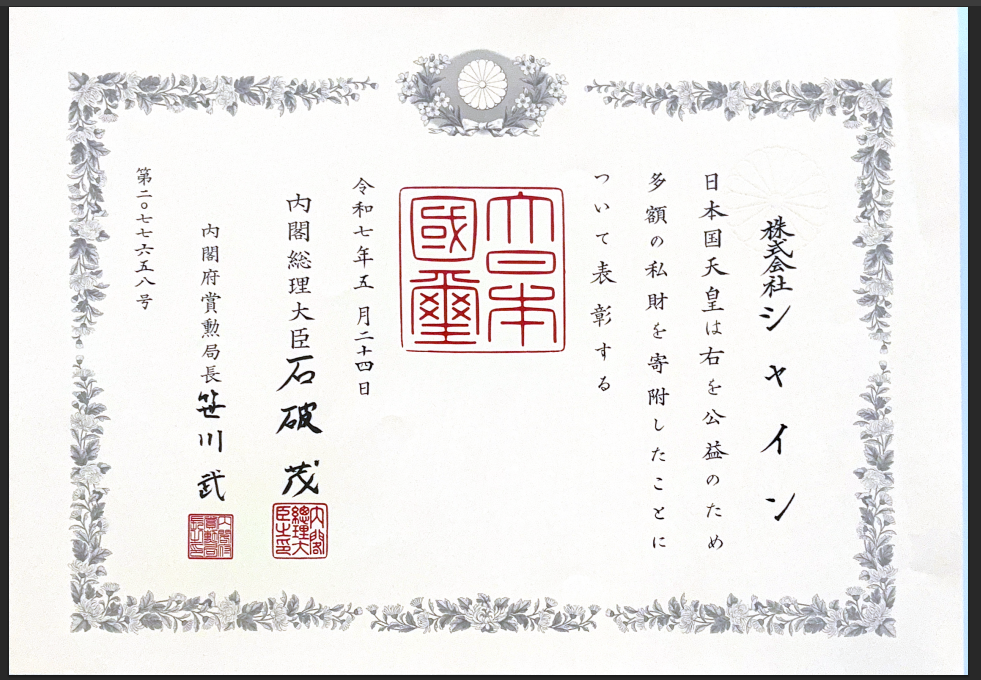 株式会社シャイン
日本国天皇は右を公益のため
多額の私財を寄附したことに
ついて表彰する
大日本國璽
令和七年五月二十四日
内閣総理大臣石破茂
内閣総理大臣之印
内閣府賞勲局長笹川武
内閣府賞勲局長之印
第二〇七七六五八号